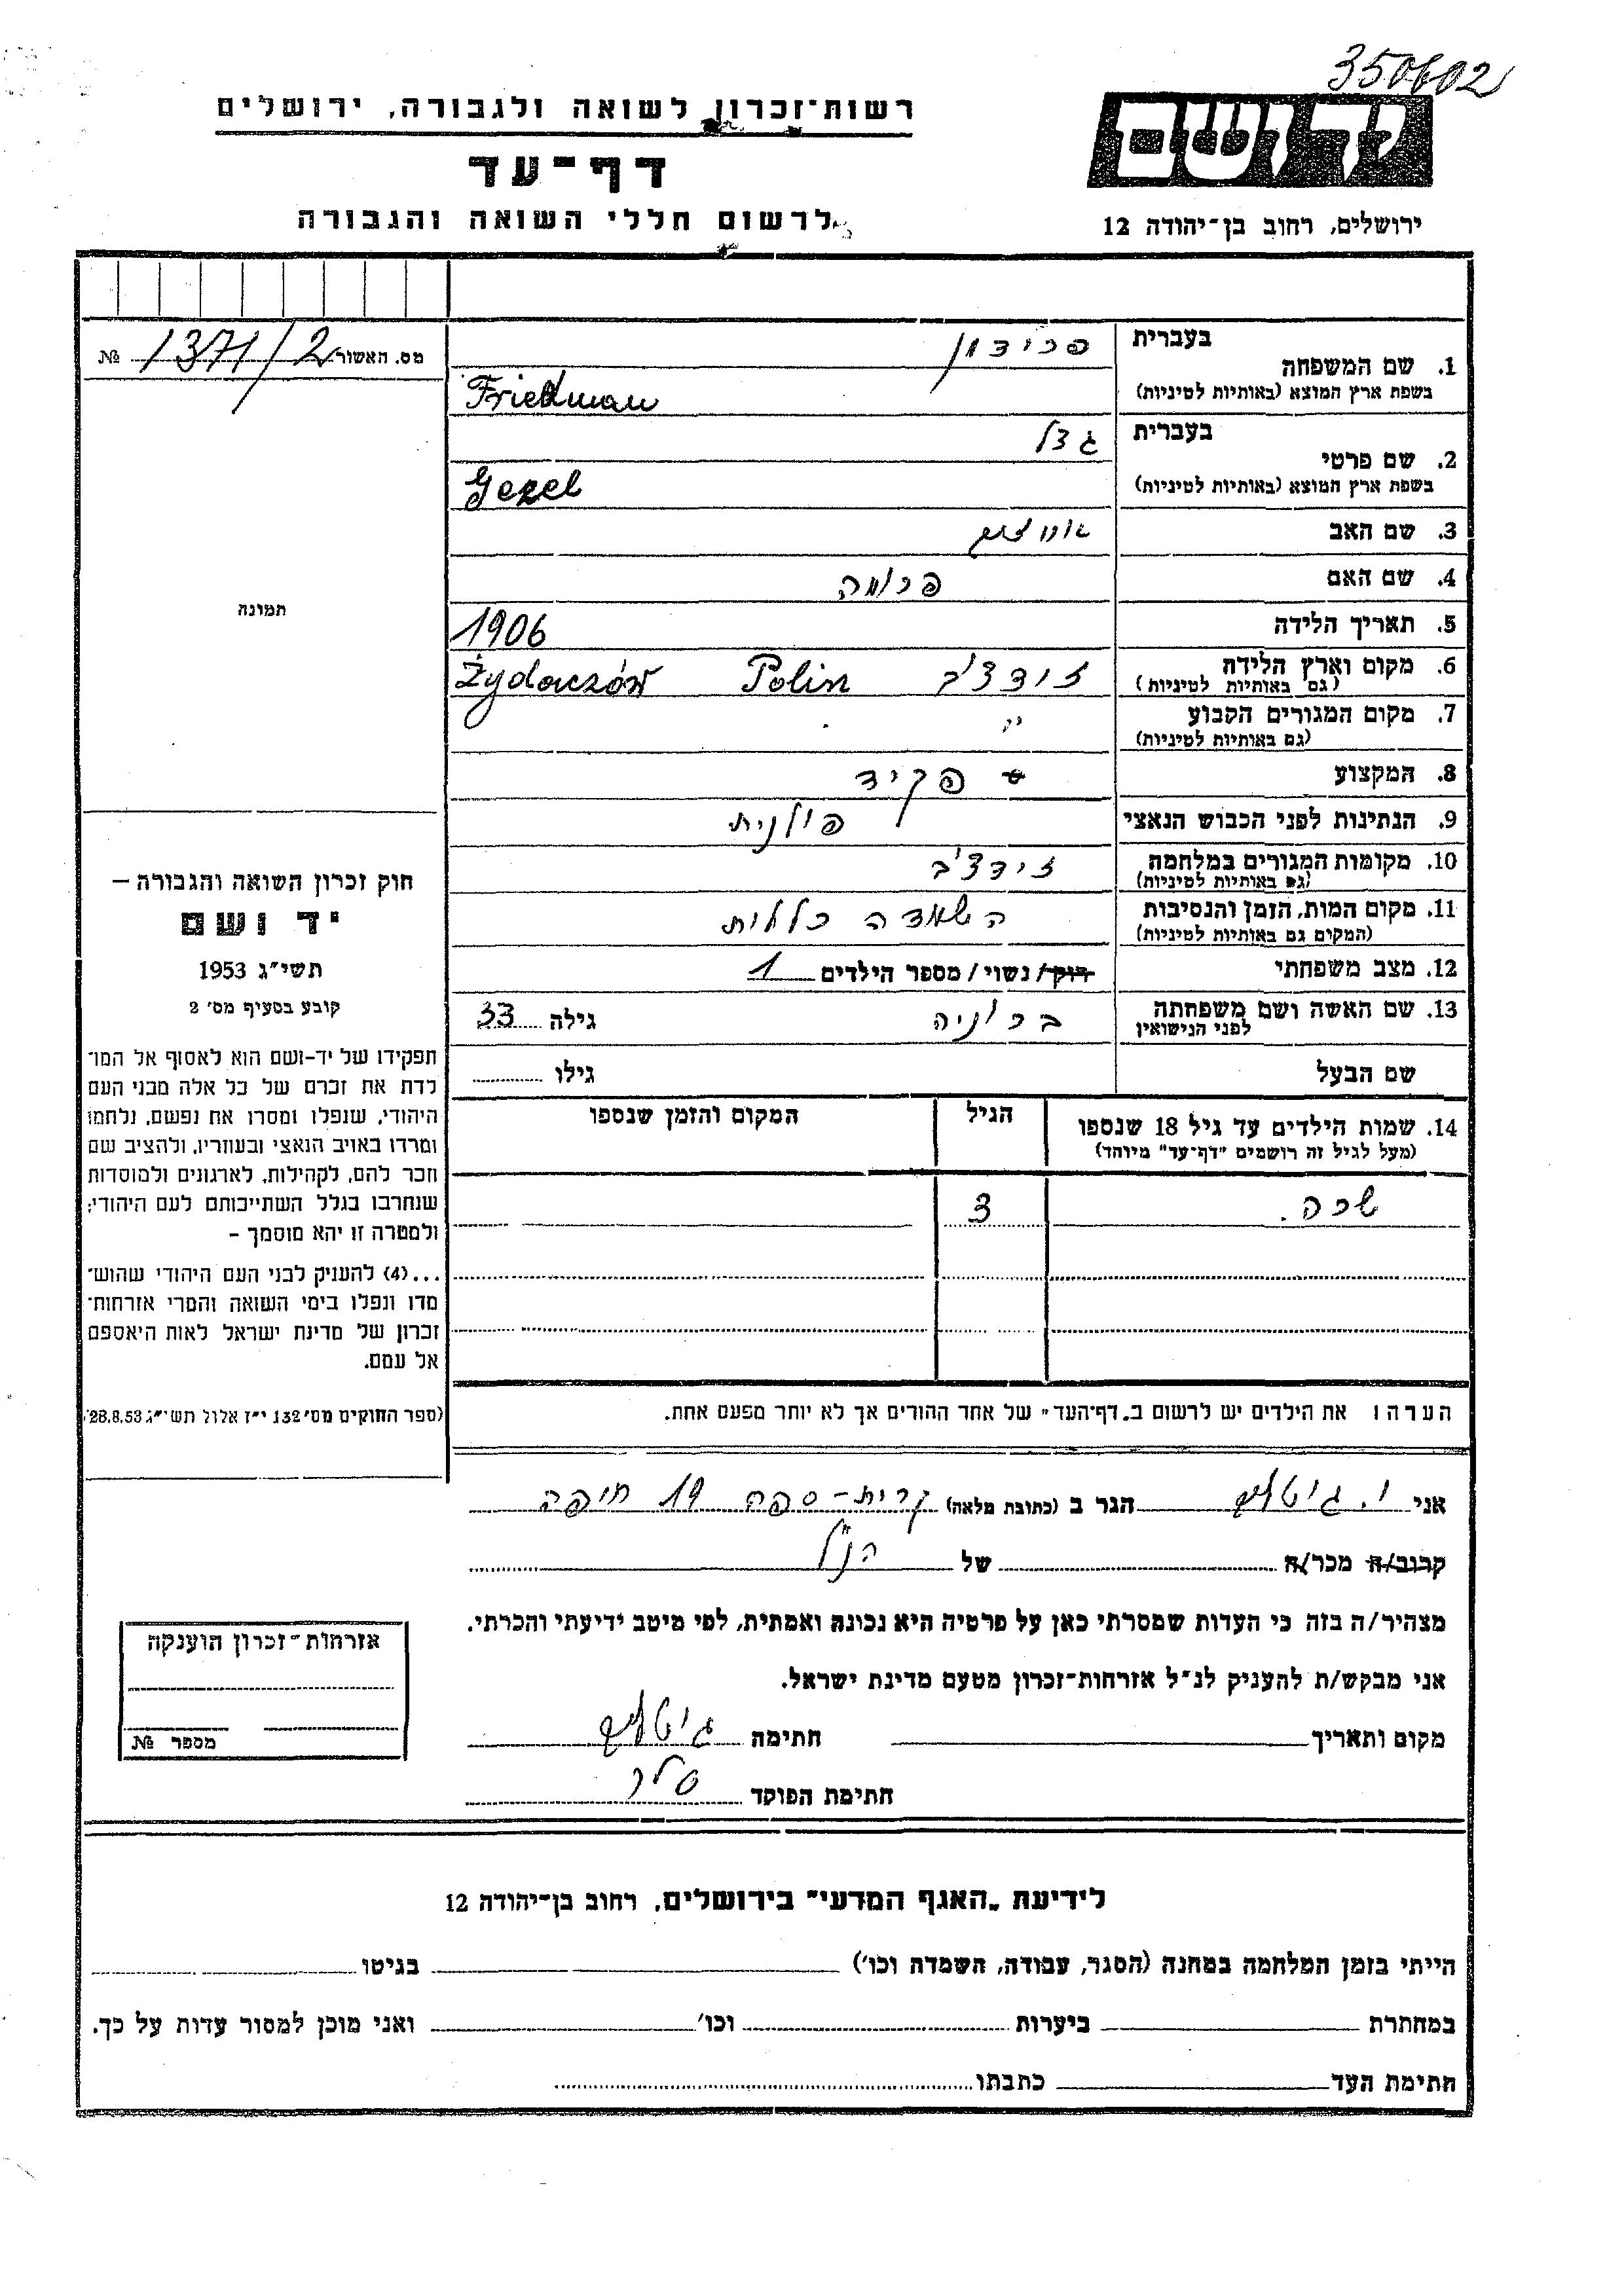 350602
יד ושם
ירושלים, רחוב בן־יהודה 12
רשות־זכרון לשואה ולגבורה, ירושלים
דף־עד
לרשום חללי השואה והגבורה
מס. האשור 1371/2 №
תמונה
1. שם המשפחה בעברית פרידמן
בשפת ארץ המוצא (באותיות לטיניות) Friedman
2. שם פרטי בעברית גצל
בשפת ארץ המוצא (באותיות לטיניות) Gezel
3. שם האב
4. שם האם
5. תאריך הלידה 1906
6. מקום וארץ הלידה (גם באותיות לטיניות) זידצ'ב Polin Żydaczów
7. מקום המגורים הקבוע (גם באותיות לטיניות) "
8. המקצוע פקיד
9. הנתינות לפני הכבוש הנאצי פולנית
10. מקומות המגורים במלחמה (גם באותיות לטיניות) זידצ'ב
11. מקום המות, הזמן והנסיבות (המקום גם באותיות לטיניות) השמדה כללית
12. מצב משפחתי רוק/נשוי/מספר הילדים 1
13. שם האשה ושם משפחתה לפני הנישואין ברוניה גילה 33
שם הבעל גילו
14. שמות הילדים עד גיל 18 שנספו
(מעל לגיל זה רושמים "דף־עד" מיוחד)
הגיל
המקום והזמן שנספו
שרה. 3
הערה: את הילדים יש לרשום ב„דף־העד" של אחד ההורים אך לא יותר מפעם אחת.
חוק זכרון השואה והגבורה –
יד ושם
תשי"ג 1953
קובע בסעיף מס' 2
תפקידו של יד-ושם הוא לאסוף אל המו־
לדת את זכרם של כל אלה מבני העם
היהודי, שנפלו ומסרו את נפשם, נלחמו
ומרדו באויב הנאצי ובעוזריו, ולהציב שם
וזכר להם, לקהילות, לארגונים ולמוסדות
שנחרבו בגלל השתייכותם לעם היהודי;
ולמטרה זו יהא מוסמך –
...(4) להעניק לבני העם היהודי שהוש־
מדו ונפלו בימי השואה והמרי אזרחות־
זכרון של מדינת ישראל לאות היאספם
אל עמם.
(ספר החוקים מס' 132 י"ז אלול תשי"ג 28.8.53)
אני הגר ב (כתובת מלאה) קרית-ספר 19 חיפה
קרוב/ה מכר/ה של הנ"ל
מצהיר/ה בזה כי העדות שמסרתי כאן על פרטיה היא נכונה ואמתית, לפי מיטב ידיעתי והכרתי.
אני מבקש/ת להעניק לנ"ל אזרחות־זכרון מטעם מדינת ישראל.
מקום ותאריך חתימה
חתימת הפוקד
אזרחות־זכרון הוענקה
מספר №
לידיעת „האגף המדעי" בירושלים, רחוב בן־יהודה 12
הייתי בזמן המלחמה במחנה (הסגר, עבודה, השמדה וכו') בגיטו
במחתרת ביערות וכו' ואני מוכן למסור עדות על כך.
חתימת העד כתבתו